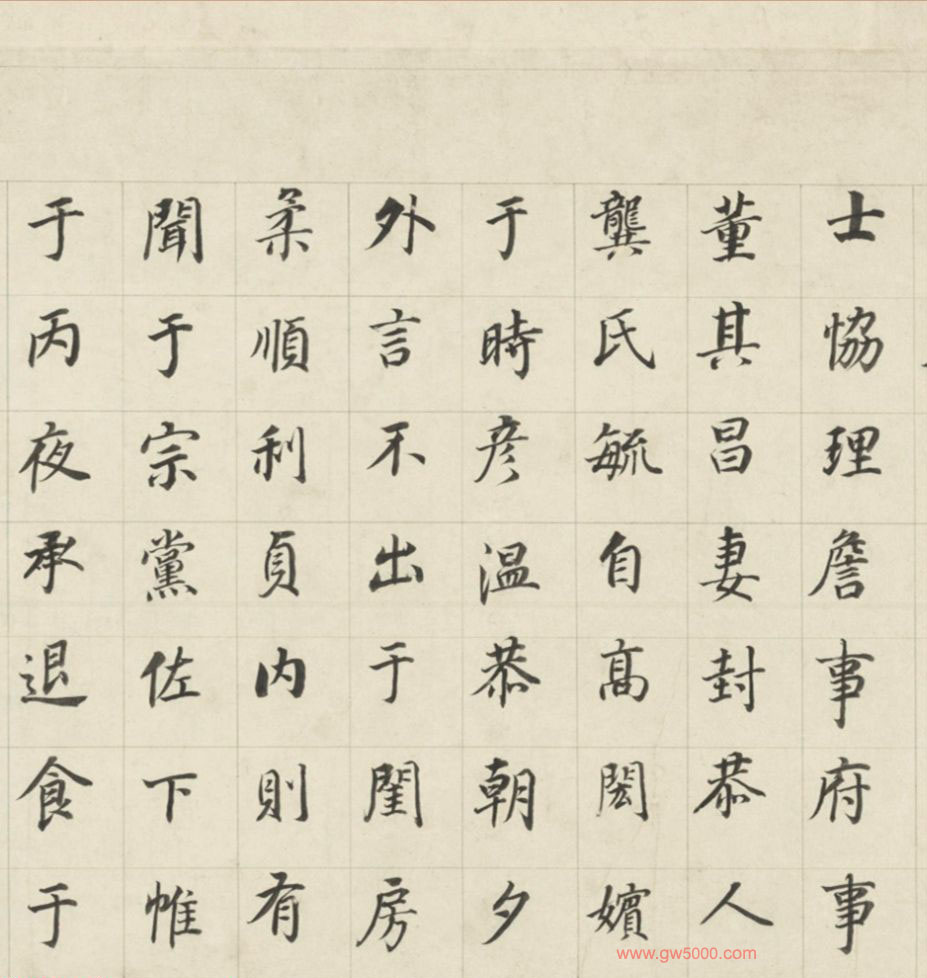 士協理詹事府事
董其昌妻封恭人
龔氏毓自高閎嬪
于時彦温恭朝夕
外言不出于閨房
柔順利貞内則有
聞于宗黨佐下帷
于丙夜承退食于
www.gw5000.com